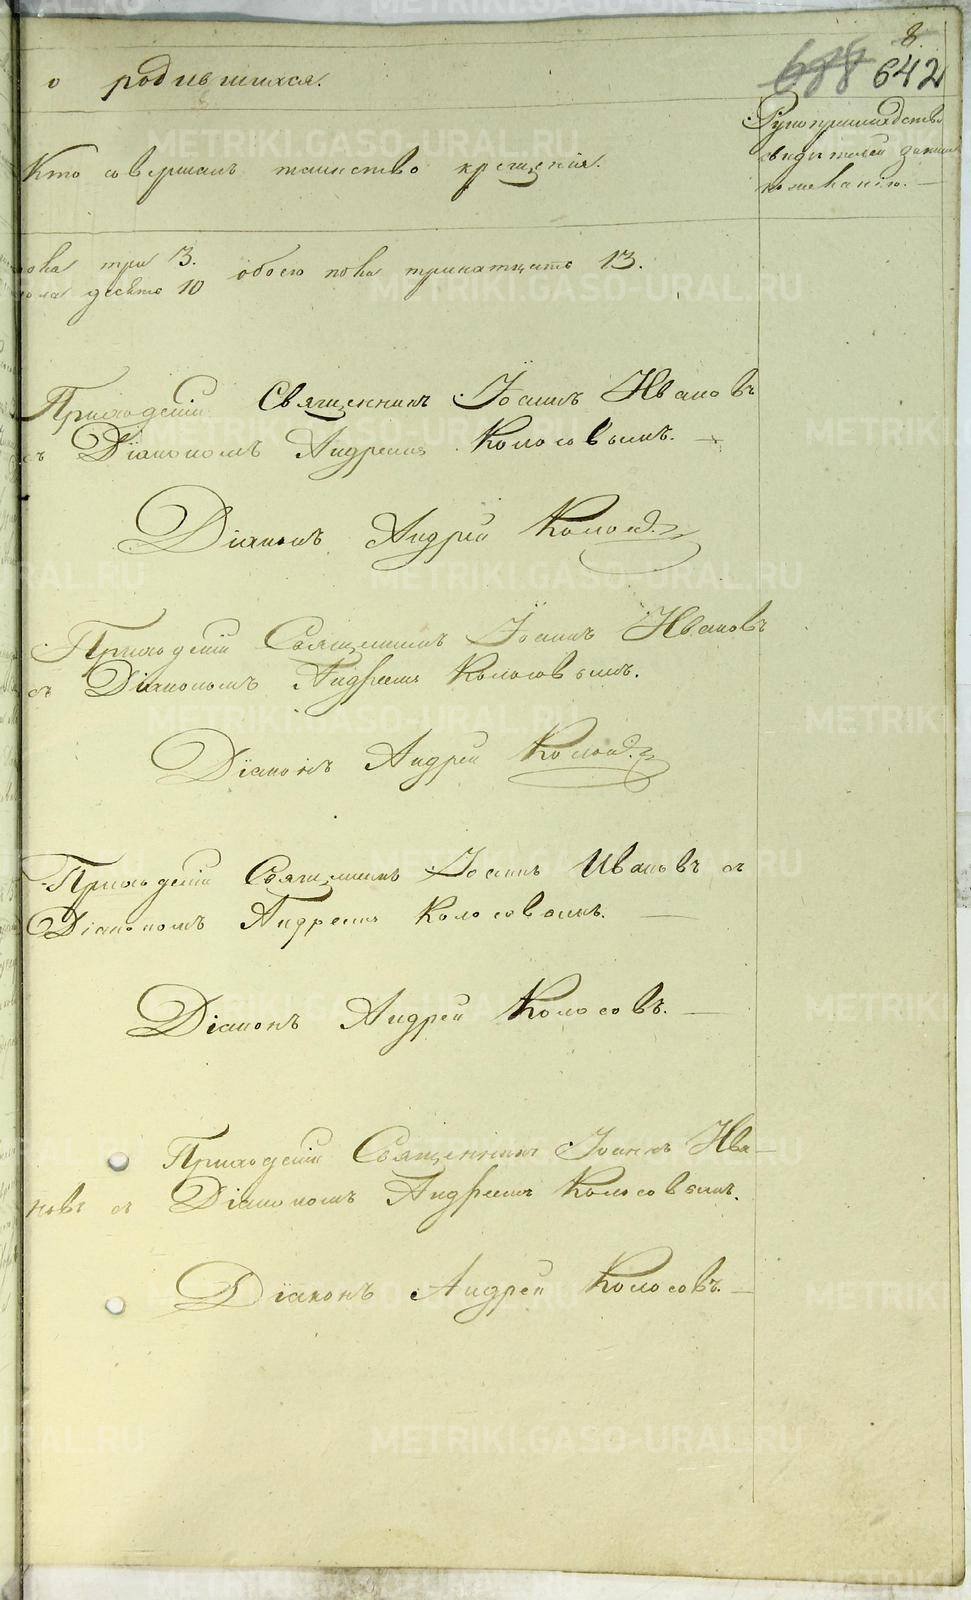 8.
688 642
о родившихся.
Рукоприкладство
свидетелей записи
по желанію.
Кто совершалъ таинство крещенія.
пола три 3.
обоего пола тринатцать 13.
пола десять 10
Приходскій Священникъ Іоаннъ Ивановъ
съ Діакономъ Андреемъ Колосовымъ.
Діаконъ Андрей Колосов
Приходскій Священникъ Іоаннъ Ивановъ
съ Діакономъ Андреемъ Колосовымъ.
Діаконъ Андрей Колосов
Приходскій Священникъ Іоаннъ Ивановъ съ
Діакономъ Андреемъ Колосовымъ.
Діаконъ Андрей Колосовъ.
Приходскій Священникъ Іоаннъ Ива-
новъ съ Діакономъ Андреемъ Колосовымъ.
Діаконъ Андрей Колосовъ.
METRIKI.GASO-URAL.RU